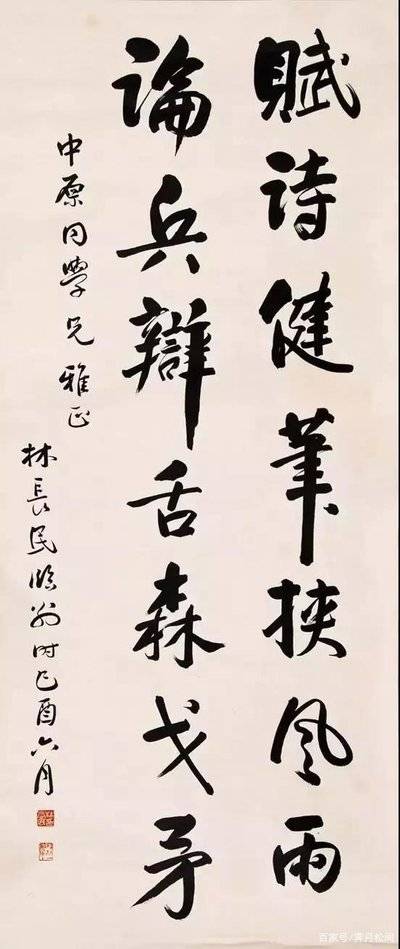 賦詩健筆挾風雨
論兵辯舌森戈矛
中原同學兄雅正
林長民臨別時己酉六月
百家号/霁月松间